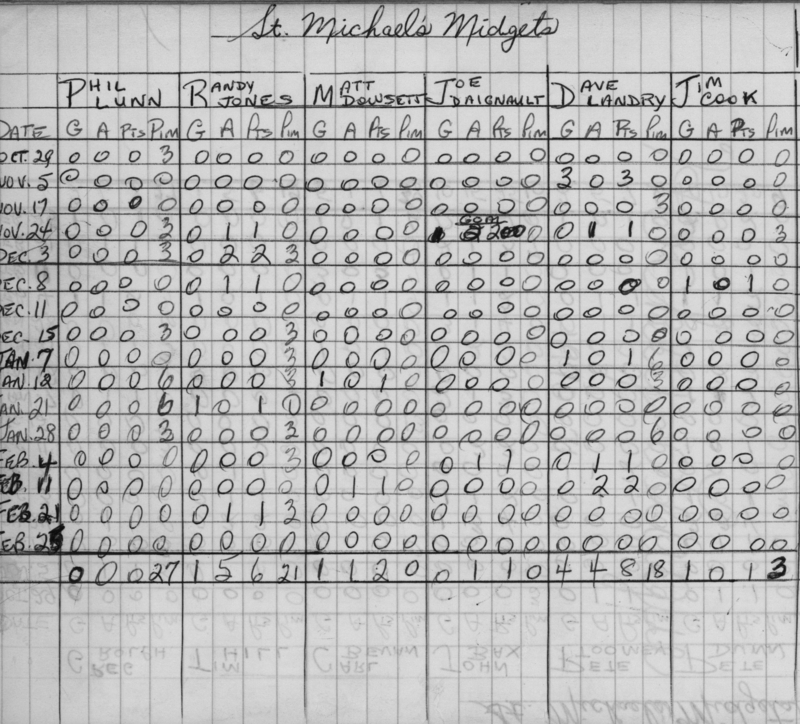 St. Michael's Midgets
PHIL LUNN RANDY JONES MATT DOWSETT JOE DAIGNAULT DAVE LANDRY JIM COOK
DATE G A Pts Pim G A Pts Pim G A Pts Pim G A Pts Pim G A Pts Pim G A Pts Pim
OCT. 29 0 0 0 3 0 0 0 0 0 0 0 0 0 0 0 0 0 0 0 0 0 0 0 0
NOV. 5 0 0 0 0 0 0 0 0 0 0 0 0 0 0 0 0 3 0 3 0 0 0 0 0
NOV. 17 0 0 0 0 0 0 0 0 0 0 0 0 0 0 0 0 0 0 0 3 0 0 0 0
NOV. 24 0 0 0 3 0 1 1 0 0 0 0 0 0 0 1 1 0 0 0 0 3
DEC. 3 0 0 0 3 0 2 2 3 0 0 0 0 0 0 0 0 0 0 0 0 0 0 0 0
DEC. 8 0 0 0 0 0 1 1 0 0 0 0 0 0 0 0 0 0 0 0 0 1 0 1 0
DEC. 11 0 0 0 0 0 0 0 0 0 0 0 0 0 0 0 0 0 0 0 0 0 0 0 0
DEC. 15 0 0 0 3 0 0 0 3 0 0 0 0 0 0 0 0 0 0 0 0 0 0 0 0
JAN. 7 0 0 0 0 0 0 0 3 0 0 0 0 0 0 0 0 1 0 1 6 0 0 0 0
JAN. 12 0 0 0 6 0 0 0 3 1 0 1 0 0 0 0 0 0 0 0 3 0 0 0 0
JAN. 21 0 0 0 6 1 0 1 0 0 0 0 0 0 0 0 0 0 0 0 0 0 0 0 0
JAN. 28 0 0 0 3 0 0 0 3 0 0 0 0 0 0 0 0 0 0 0 6 0 0 0 0
FEB. 4 0 0 0 0 0 0 0 3 0 0 0 0 0 1 1 0 0 1 1 0 0 0 0 0
FEB. 11 0 0 0 0 0 0 0 0 0 1 1 0 0 0 0 0 0 2 2 0 0 0 0 0
FEB. 21 0 0 0 0 0 1 1 3 0 0 0 0 0 0 0 0 0 0 0 0 0 0 0 0
FEB. 25 0 0 0 0 0 0 0 0 0 0 0 0 0 0 0 0 0 0 0 0 0 0 0 0
0 0 0 27 1 5 6 21 1 1 2 0 0 1 1 0 4 4 8 18 1 0 1 3